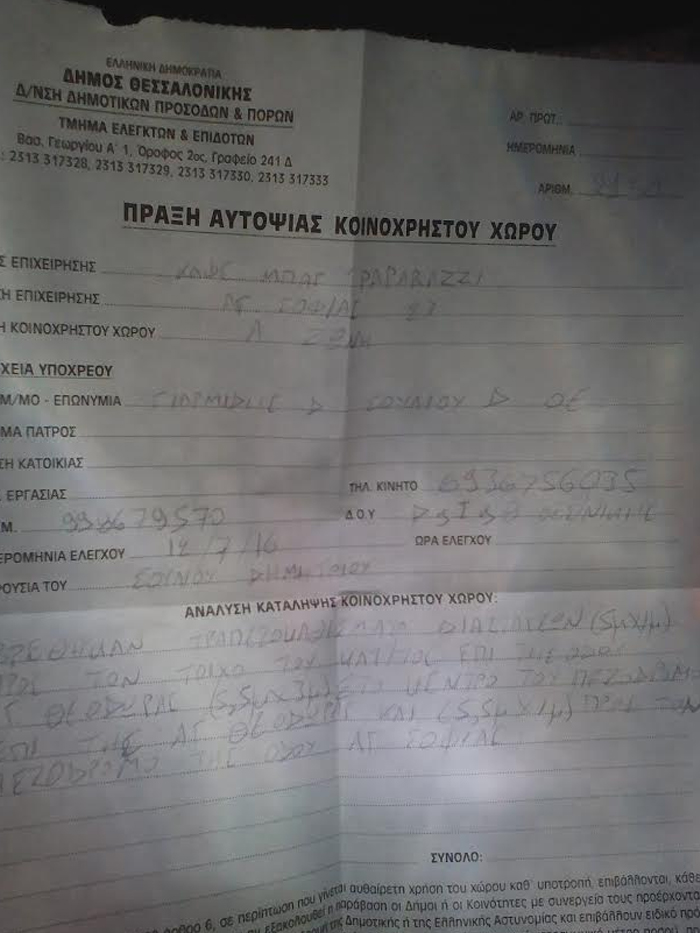 ΕΛΛΗΝΙΚΗ ΔΗΜΟΚΡΑΤΙΑ
ΔΗΜΟΣ ΘΕΣΣΑΛΟΝΙΚΗΣ
Δ/ΝΣΗ ΔΗΜΟΤΙΚΩΝ ΠΡΟΣΟΔΩΝ & ΠΟΡΩΝ
ΤΜΗΜΑ ΕΛΕΓΚΤΩΝ & ΕΠΙΔΟΤΩΝ
Βασ. Γεωργίου Α' 1, Όροφος 2ος, Γραφείο 241 Δ
: 2313 317328, 2313 317329, 2313 317330, 2313 317333
ΑΡ. ΠΡΩΤ.:
ΗΜΕΡΟΜΗΝΙΑ
ΑΡΙΘΜ.
ΠΡΑΞΗ ΑΥΤΟΨΙΑΣ ΚΟΙΝΟΧΡΗΣΤΟΥ ΧΩΡΟΥ
Σ ΕΠΙΧΕΙΡΗΣΗΣ ΚΑΦΕ ΜΠΑΡ PAPARAZZI
Η ΕΠΙΧΕΙΡΗΣΗΣ ΑΓ ΣΟΦΙΑΣ
Η ΚΟΙΝΟΧΡΗΣΤΟΥ ΧΩΡΟΥ Α ΖΩΝΗ
ΧΕΙΑ ΥΠΟΧΡΕΟΥ
Μ/ΜΟ - ΕΠΩΝΥΜΙΑ ΣΟΥΛΙΟΥ Δ ΟΕ
ΜΑ ΠΑΤΡΟΣ
ΣΗ ΚΑΤΟΙΚΙΑΣ
. ΕΡΓΑΣΙΑΣ
ΤΗΛ. ΚΙΝΗΤΟ 6936756035
Μ. 998679570
Δ.Ο.Υ
ΕΡΟΜΗΝΙΑ ΕΛΕΓΧΟΥ 12/7/16
ΩΡΑ ΕΛΕΓΧΟΥ
ΡΟΥΣΙΑ ΤΟΥ ΔΗΜΗΤΡΙΟΥ
ΑΝΑΛΥΣΗ ΚΑΤΑΛΗΨΗΣ ΚΟΙΝΟΧΡΗΣΤΟΥ ΧΩΡΟΥ:
ΒΡΕΘΗΚΑΝ ΤΡΑΠΕΖΟΚΑΘΙΣΜΑΤΑ ΔΙΑΣΤΑΣΕΩΝ (5μΧ1μ)
ΠΡΟΣ ΤΟΝ ΤΟΙΧΟ ΤΟΥ ΚΑΤ/ΤΟΣ ΕΠΙ ΤΗΣ ΟΔΟΥ
ΑΓ ΘΕΟΔΩΡΑΣ (5,5μΧ3μ) ΣΤΟ ΚΕΝΤΡΟ ΤΟΥ ΠΕΖΟΔΡΟΜΟ
ΕΠΙ ΤΗΣ ΑΓ ΘΕΟΔΩΡΑΣ ΚΑΙ (5,5μΧ1μ) ΠΡΟΣ ΤΟΝ
ΠΕΖΟΔΡΟΜΟ ΤΗΣ ΟΔΟΥ ΑΓ ΣΟΦΙΑΣ
ΣΥΝΟΛΟ:
6, σε περίπτωση που γίνεται αυθαίρετη χρήση του χώρου καθ' υποτροπή, επιβάλλονται, κάθε
εξακολουθεί η παράβαση οι Δήμοι ή οι Κοινότητες με συνεργεία τους προέρχοντα
Δημοτικής ή της Ελληνικής Αστυνομίας και επιβάλλουν ειδικό πρό